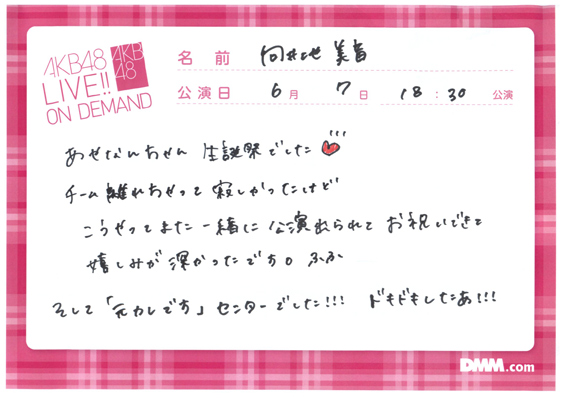 AKB48
LIVE!!
ON DEMAND
AKB
48
名前 向井地 美音
公演日 6月 7日 18:30 公演
あせなんちゃん 生誕祭でした
チーム離れちゃって 寂しかったけど
こうやってまた一緒に公演出られて お祝いできて
嬉しみが深かったです。ふふ
そして「元カレです」センターでした!!! ドキドキしたあ!!!
DMM.com